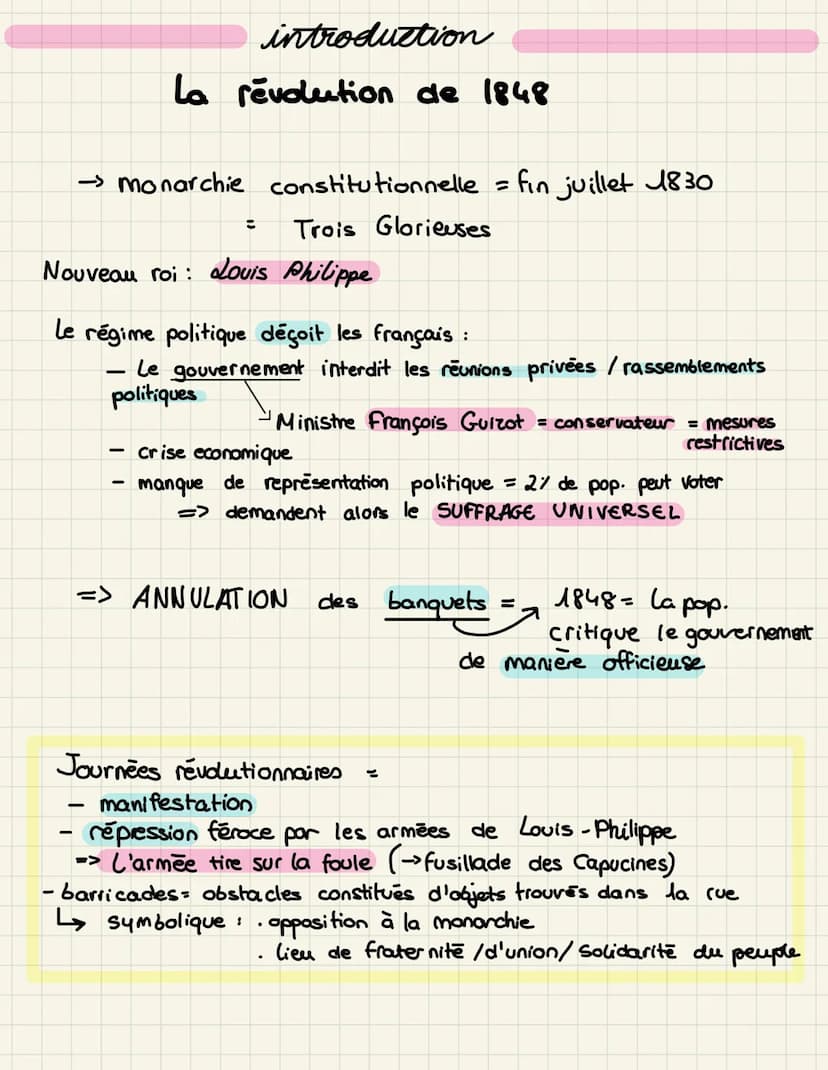 introduction
La révolution de 1848
→ monarchie constitutionnelle = fin juillet 1830
= Trois Glorieuses
Nouveau roi : Louis Philippe
Le régime politique déçoit les français :
– Le gouvernement interdit les réunions privées / rassemblements
politiques
Ministre François Guizot = conservateur = mesures
restrictives
– crise economique
– manque de représentation politique = 2% de pop. peut voter
=> demandent alors le SUFFRAGE UNIVERSEL
=> ANNULATION des banquets = 1848 = la pop.
critique le gouvernement
de manière officieuse
Journées révolutionnaires =
– manifestation
– répession féroce par les armées de Louis-Philippe
=> L'armée tire sur la foule (→fusillade des Capucines)
– barricades = obstacles constitués d'objets trouvés dans la rue
↳ symbolique : . opposition à la monarchie
. lieu de fraternité /d'union/ solidarité du peuple